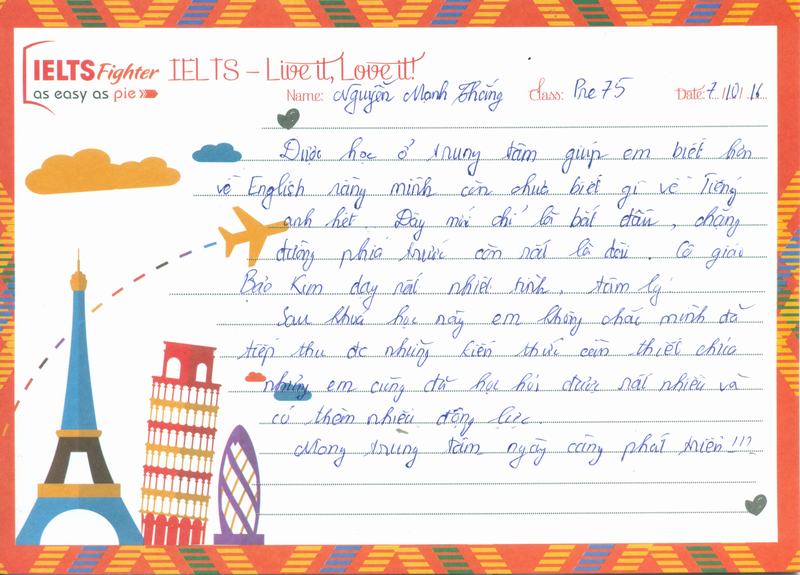 IELTS Fighter
as easy as pie
IELTS – Live it, Love it!
Name: Nguyễn Mạnh Thắng Class: Pre 75 Date: 7/10/16
Được học ở trung tâm giúp em biết hơn
về English rằng mình còn chưa biết gì về Tiếng
anh hết. Đây mới chỉ là bắt đầu, chặng
đường phía trước còn rất là dài. Cô giáo
Bảo Kim dạy rất nhiệt tình, tâm lý
Sau khoá học này em không chắc mình đã
tiếp thu đc những kiến thức cần thiết chưa
nhưng em cũng đã học hỏi được rất nhiều và
có thêm nhiều động lực.
Mong trung tâm ngày càng phát triển !!!